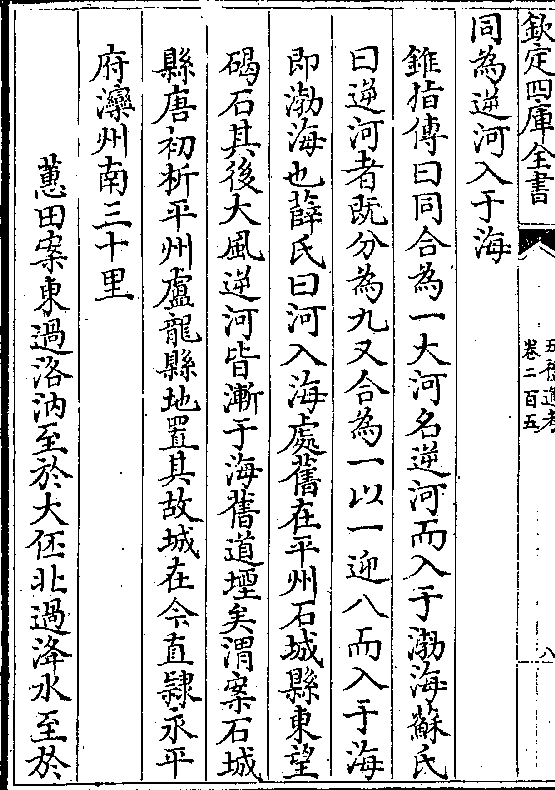 欽定四庫全書
五禮通考
卷二百五
八
同為逆河入于海
錐指傳曰同合為一大河名逆河而入于渤海蘇氏
曰逆河者既分為九又合為一以一迎八而入于海
即渤海也薛氏曰河入海處舊在平州石城縣東望
碣石其後大風逆河皆漸于海舊道堙矣渭案石城
縣唐初析平州盧龍縣地置其故城在今直隸永平
府灤州南三十里
蕙田案東過洛汭至於大伾北過洚水至於